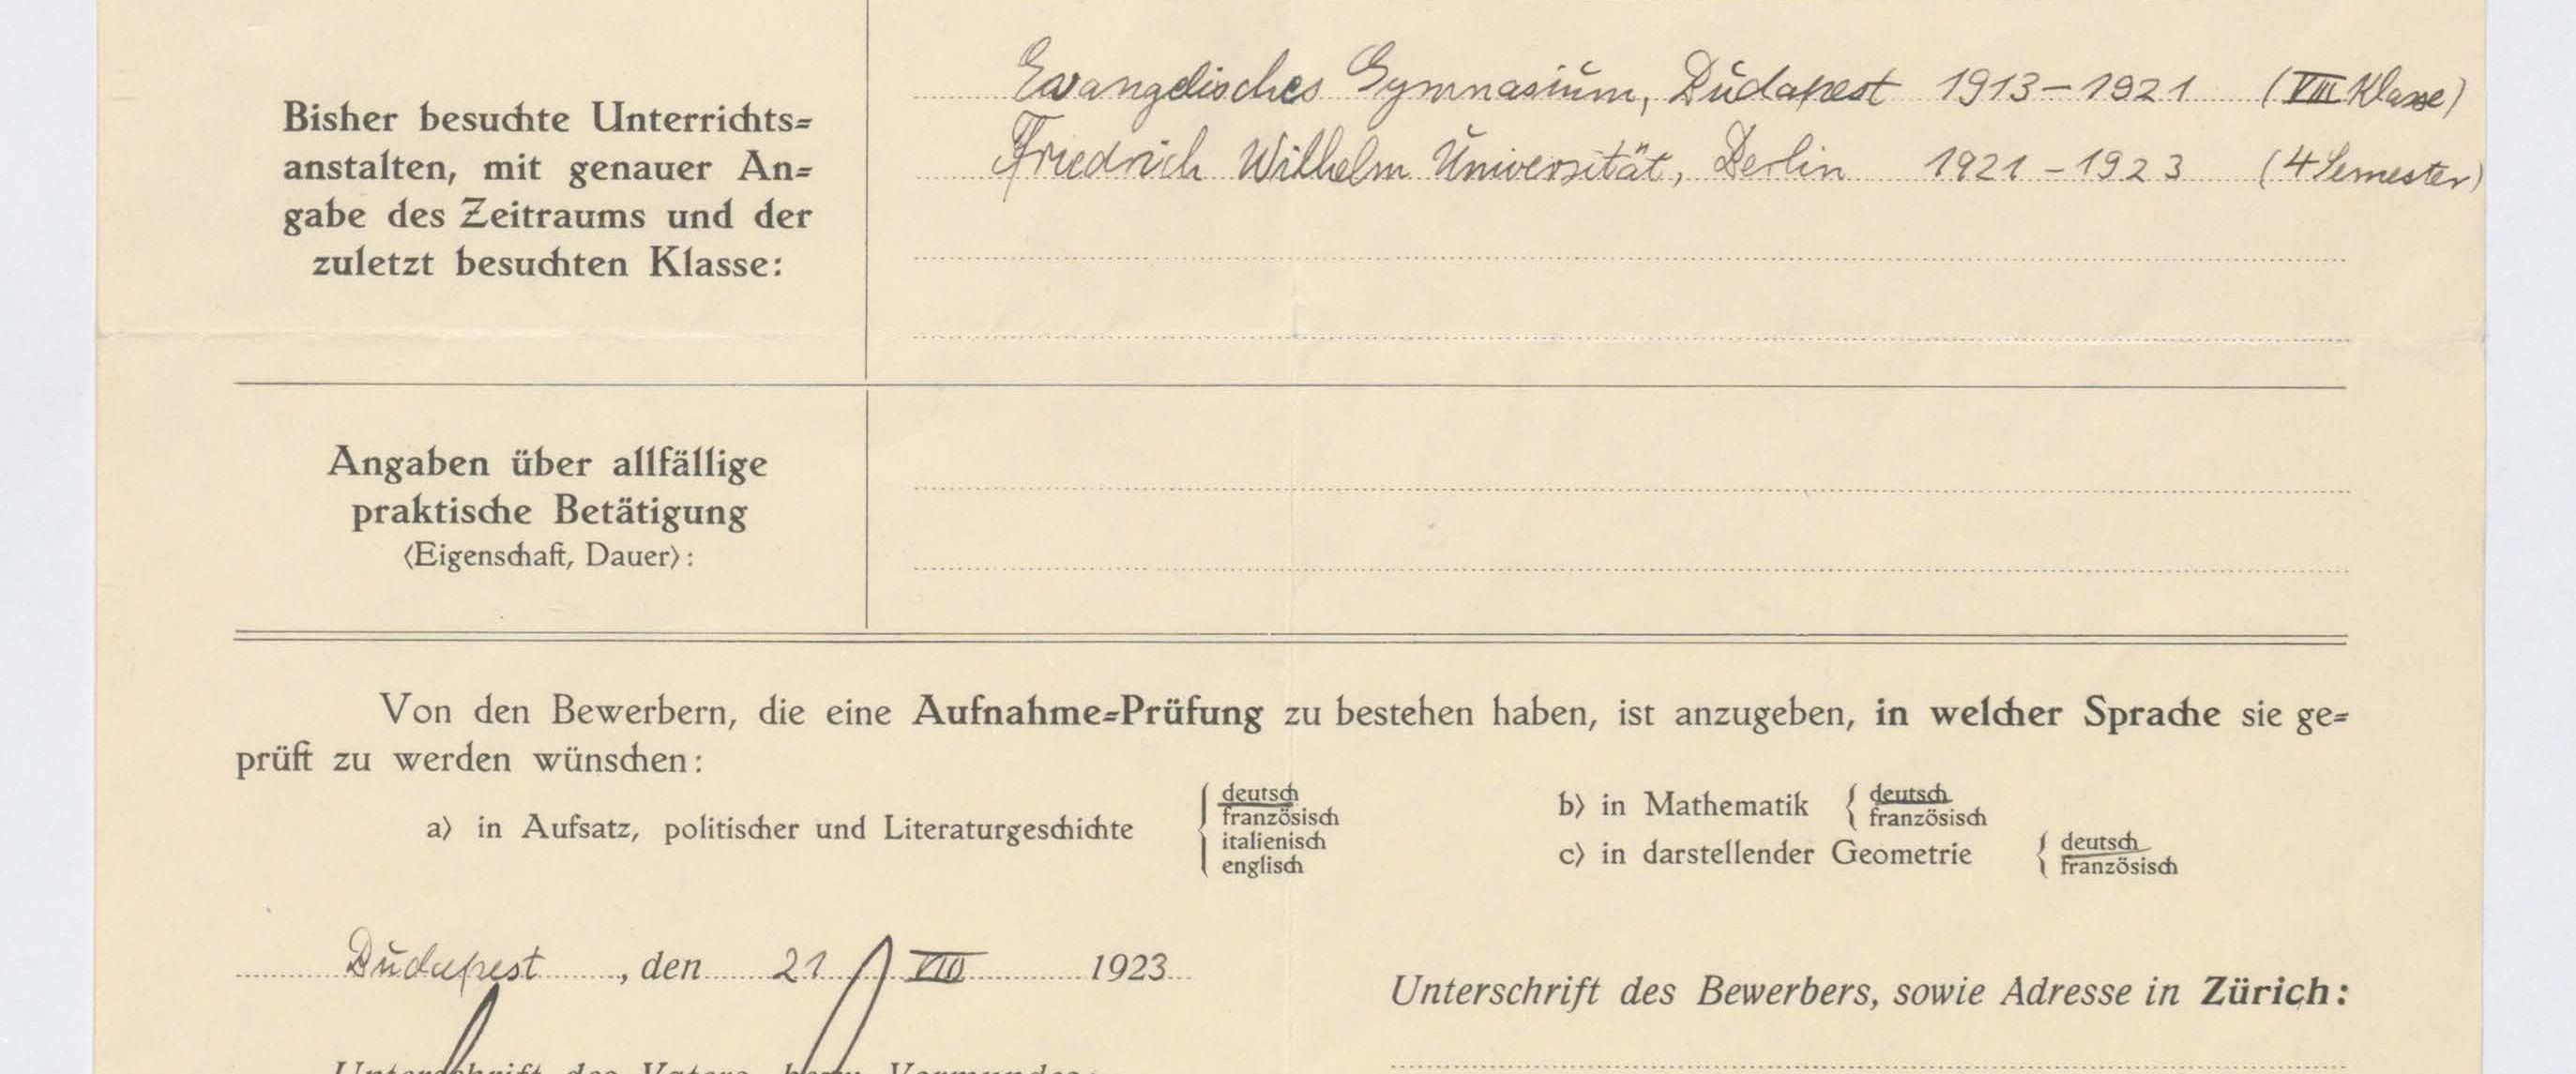 Evangelisches Gymnasium, Budapest 1913–1921 (VIII Klasse)
Bisher besuchte Unterrichts=
anstalten, mit genauer An=
gabe des Zeitraums und der
zuletzt besuchten Klasse:
Friedrich Wilhelm Universität, Berlin 1921–1923 (4 Semester)
Angaben über allfällige
praktische Betätigung
(Eigenschaft, Dauer):
Von den Bewerbern, die eine Aufnahme=Prüfung zu bestehen haben, ist anzugeben, in welcher Sprache sie ge=
prüft zu werden wünschen:
a) in Aufsatz, politischer und Literaturgeschichte
deutsch
französisch
italienisch
englisch
b) in Mathematik
deutsch
französisch
c) in darstellender Geometrie
deutsch
französisch
Budapest, den 21 VIII 1923
Unterschrift des Bewerbers, sowie Adresse in Zürich:
Unterschrift des Vaters, bezw. Vormundes: